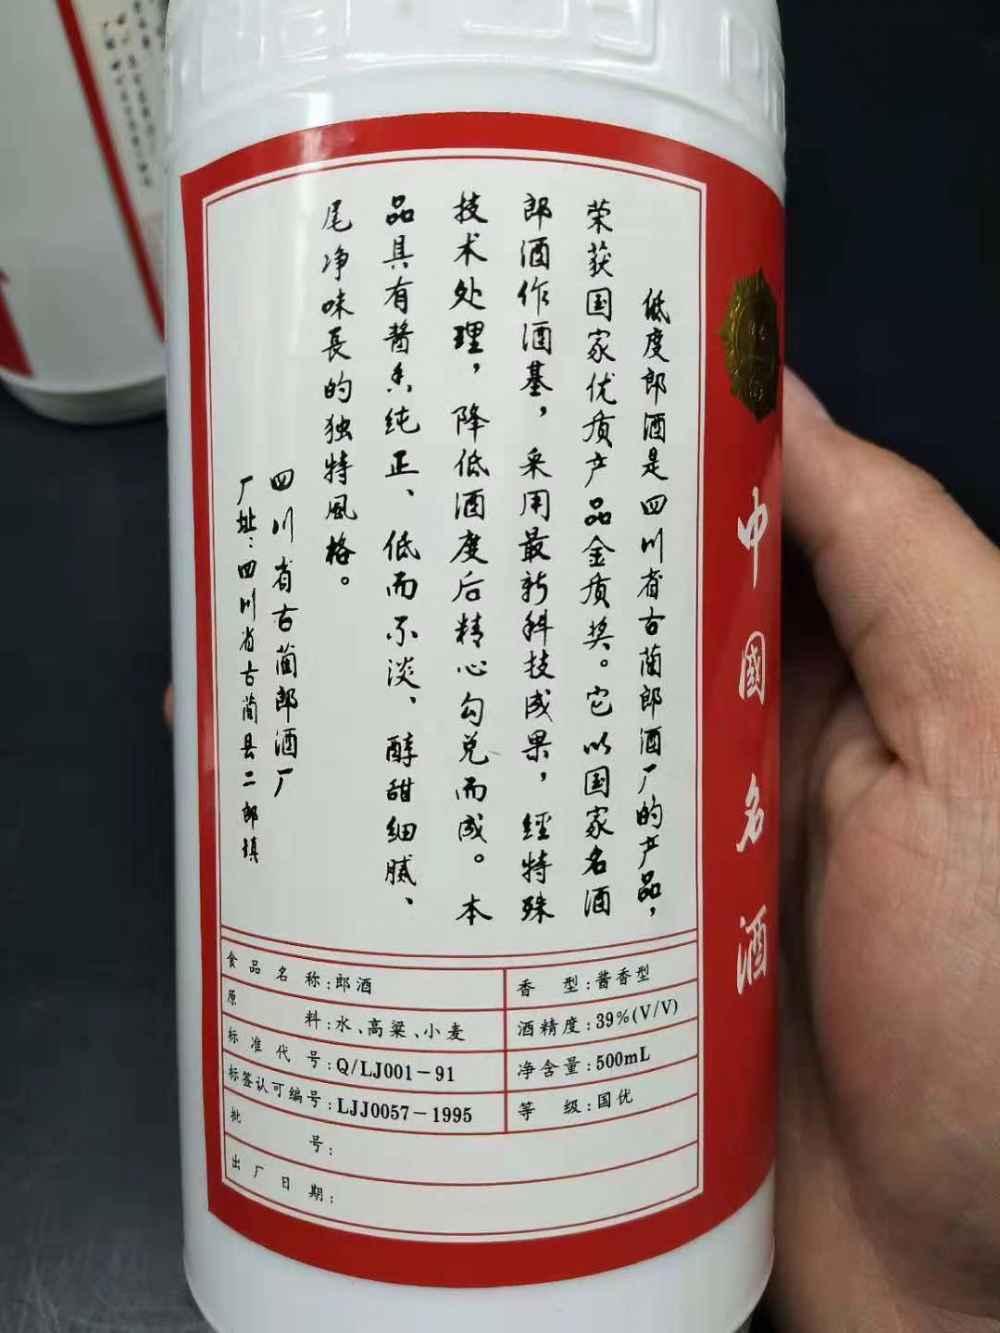 低度郎酒是四川省古蔺郎酒厂的产品，
荣获国家优质产品金质奖。它以国家名酒
郎酒作酒基，采用最新科技成果，经特殊
技术处理，降低酒度后精心勾兑而成。本
品具有酱香纯正、低而不淡、醇甜细腻、
尾净味長的独特风格。
四川省古蔺郎酒厂
厂址：四川省古蔺县二郎镇
食品名称：郎酒
香型：酱香型
原料：水、高粱、小麦
酒精度：39%(V/V)
标准代号：Q/LJ001－91
净含量：500mL
标签认可编号：LJJ0057－1995
等级：国优
批号：
出厂日期：
中國名酒